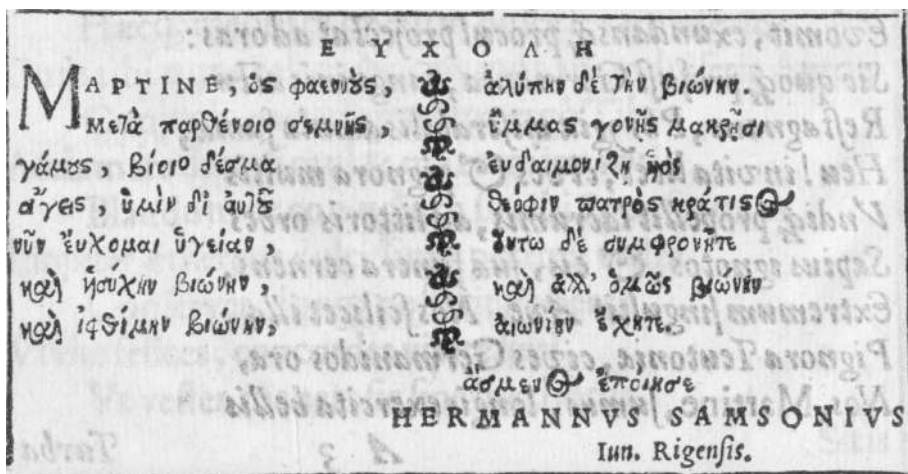 ΕΥΧΟΛΗ
ΜΑΡΤΙΝΕ, ὃς φαεινοὺς,
Μετὰ παρθένοιο σεμνῆς,
γάμους, βίοιο δέσμα
ἄγεις, ὑμὶν δι αὐτοῦ
νῦν ἔυχομαι ὑγείαν,
καὶ ἡσύχην βιώνην,
καὶ ἰφθίμην βιώνην,
ἀλύπην δέ την βιώνην.
ὔμμας γονῆς μακρῇσι
ἐυδαιμονίζη ἠὸς
θεόφιν πατρὸς κράτιϛος
ὅυτω δὲ συμφρονῆτε
καὶ ἀλλ' ὁμῶς βιώνην
αἰωνίην ἔχητε.
ἄσμενος ἐποίησε
HERMANNVS SAMSONIVS
Iun. Rigensis.